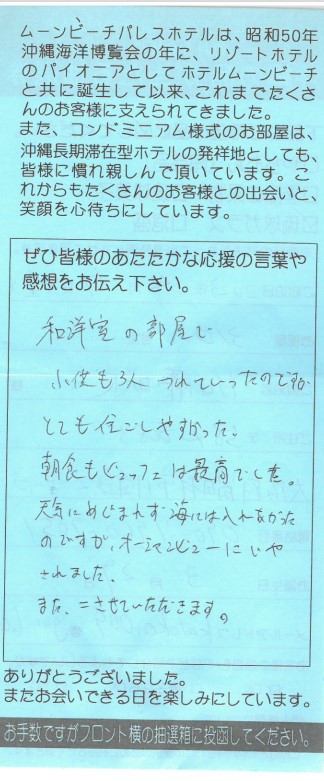 ムーンビーチパレスホテルは、昭和50年
沖縄海洋博覧会の年に、リゾートホテル
のパイオニアとしてホテルムーンビーチ
と共に誕生して以来、これまでたくさ
んのお客様に支えられてきました。
また、コンドミニアム様式のお部屋は、
沖縄長期滞在型ホテルの発祥地としても、
皆様に慣れ親しんで頂いています。こ
れからもたくさんのお客様との出会いと、
笑顔を心待ちにしています。
ぜひ皆様のあたたかな応援の言葉や
感想をお伝え下さい。
和洋室の部屋で
小供も3人つれていったのですが
とても住ごしやすかった。
朝食もビュッフェは最高でした。
天気にめぐまれず海には入れなかった
のですが、オーシャンビューにいや
されました。
また、こさせていただきます。
ありがとうございました。
またお会いできる日を楽しみにしています。
お手数ですがフロント横の抽選箱に投函してください。